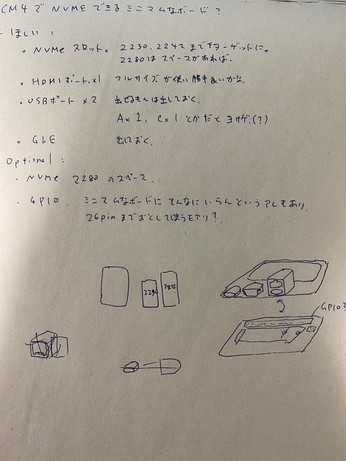 CM4でNVMEできるミニマムなボード?
ほしい:
・NVMe スロット. 2230, 2242 までをターゲットに.
2280はスペースがあれば.
・HDMIポート×1 フルサイズが使い勝手良いかな.
・USBポート×2 出せるもんは出しておく.
A×1, C×1 とかだとヨサゲ(?)
・GbE
Optional:
・NVMe 2280 のスペース.
・GPIO. ミニマムなボードにそんなにいらんというアレもあり.
26pin までおとしてしまうもアリ?.
GPIO?